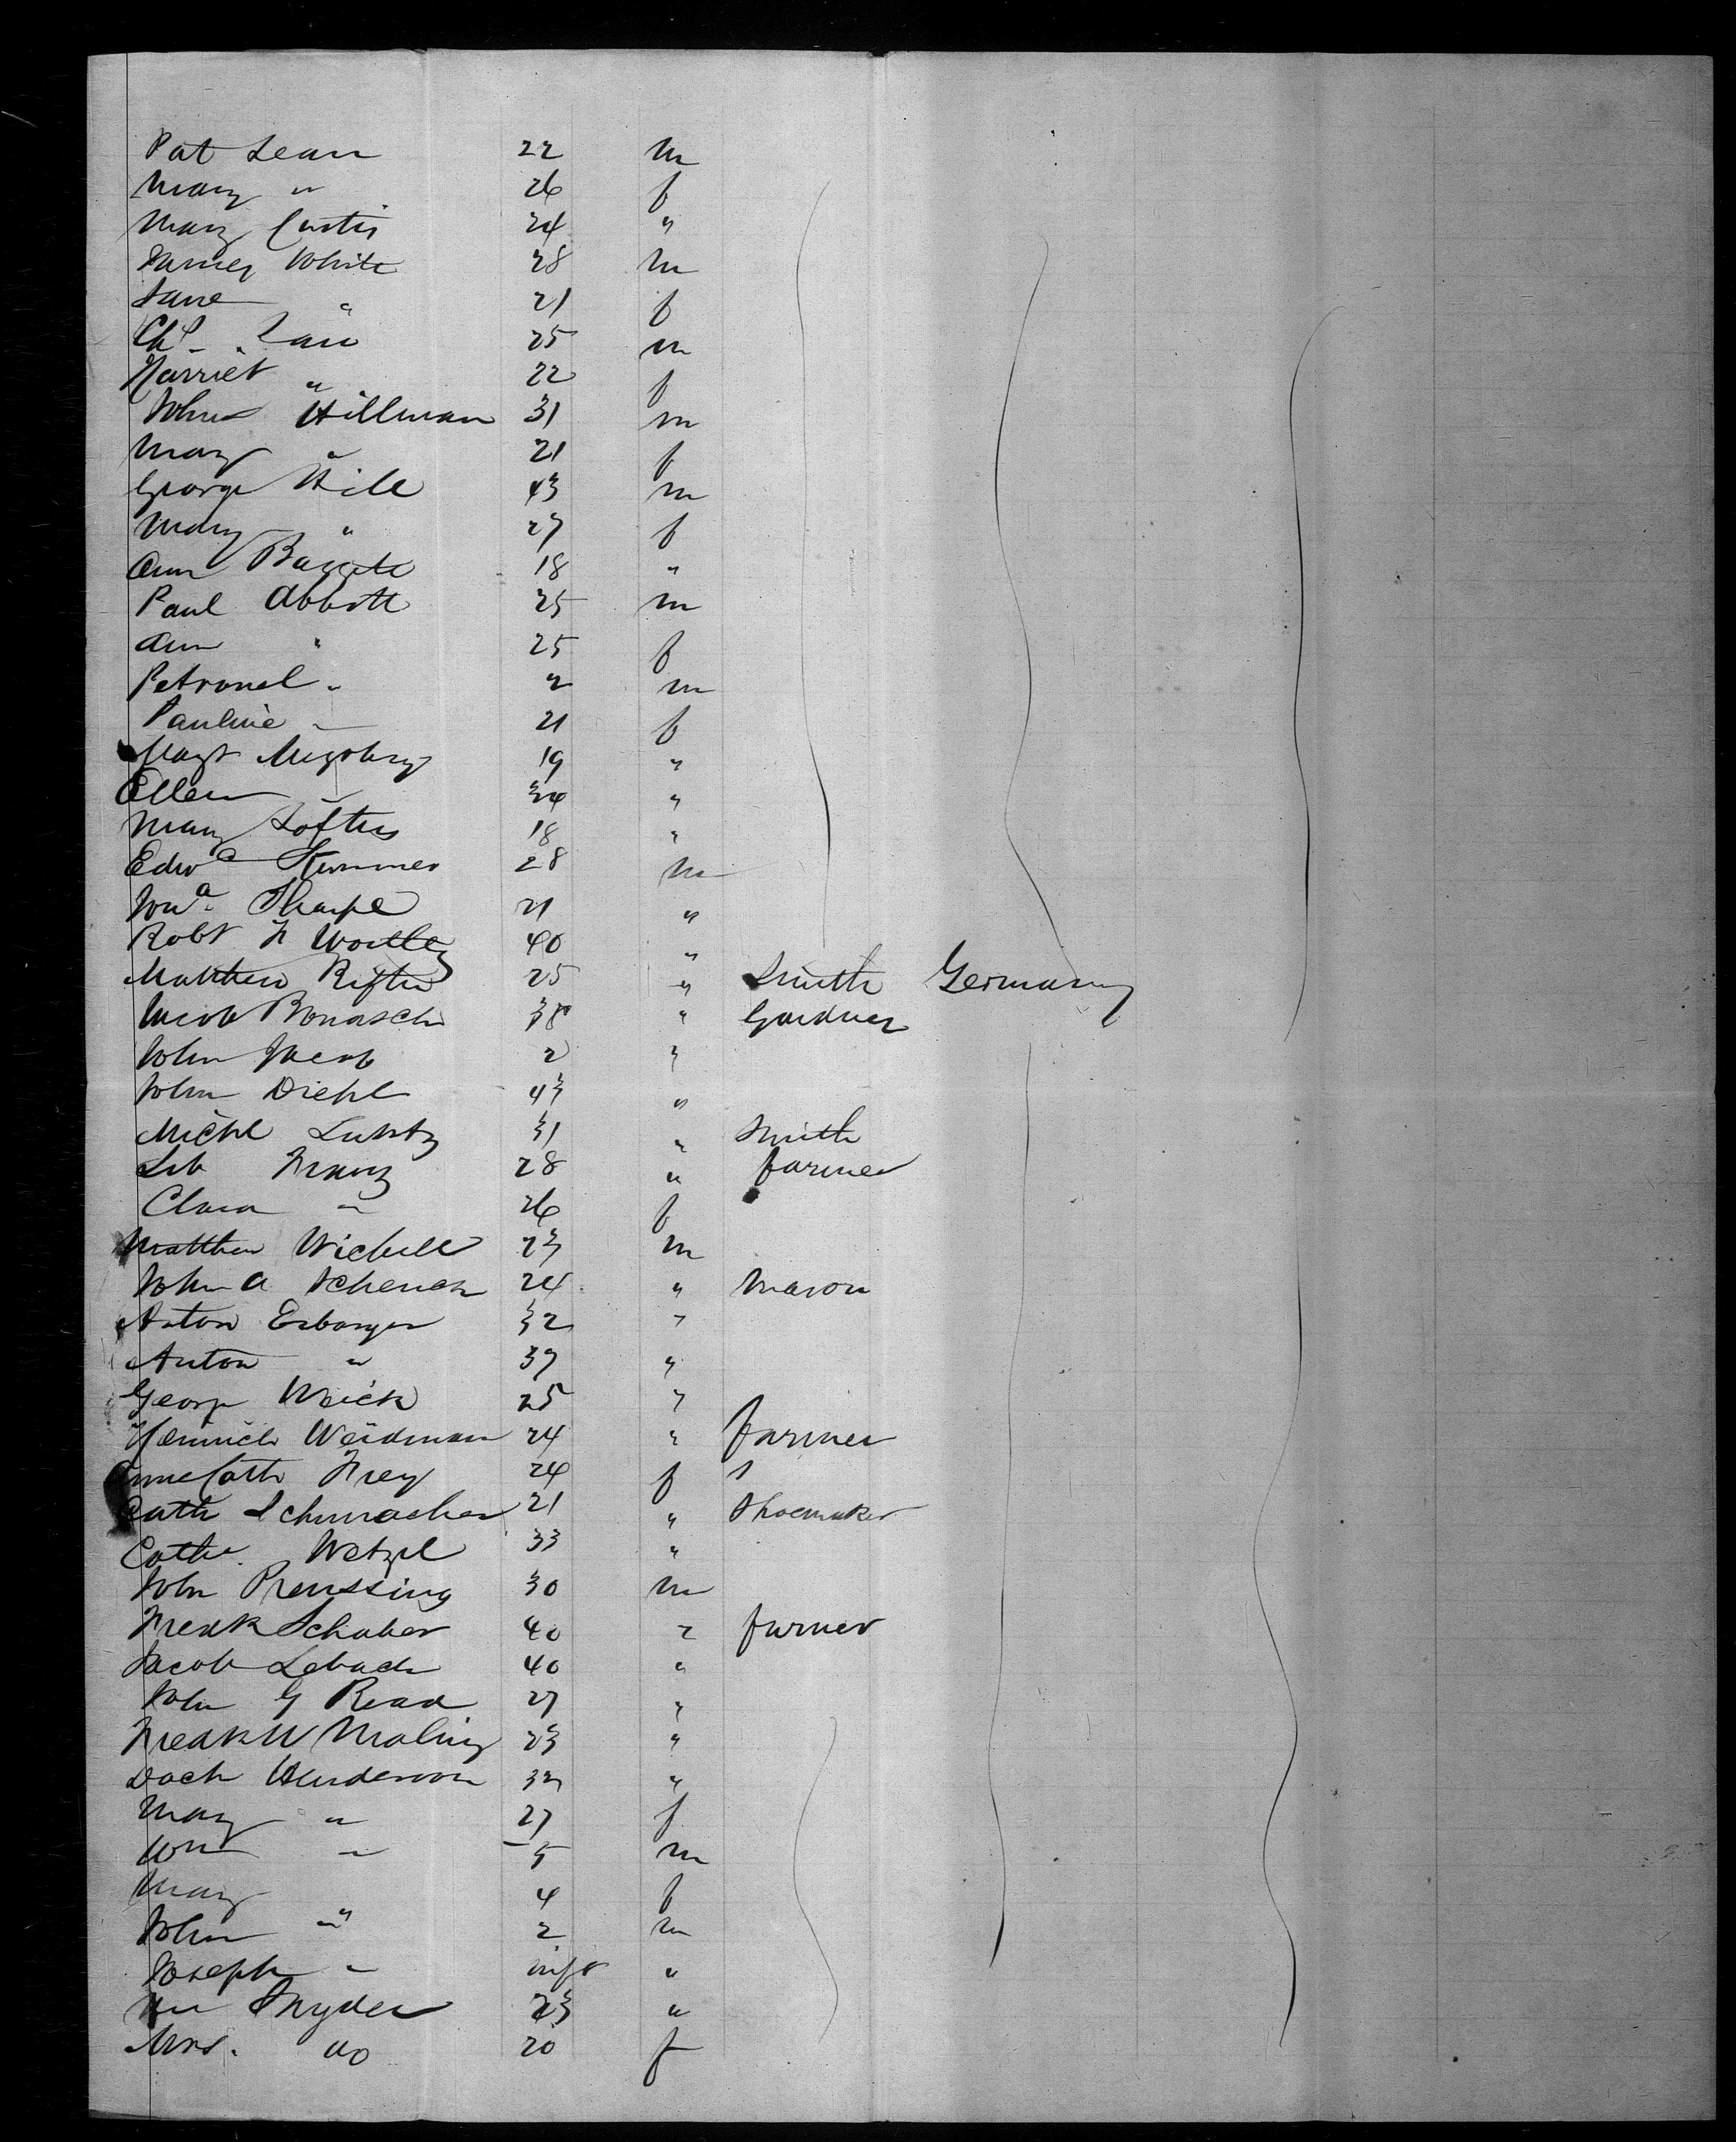 Pat Lean 22 m
Mary " 26 f
Mary Curtis 24 "
James White 28 m
Jane " 21 f
Chs 25 m
Harriet " 22 f
John Hillman 31 m
Mary " 21 f
George Hill 43 m
Mary " 27 f
Ann 18 "
Paul Abbott 25 m
Ann " 25 f
Petronel " 2 m
Pauline " 21 f
Margt 19 "
Ellen " 34 "
Mary Loftus 18 "
Edwd 28 m
Wm Sharpe 21 "
Robt H Wortley 40 "
Matthew 25 " Smith Germany
Jacob Bonasch 38 " Gardner
John Jacob 2 "
John Diehl 43 "
Michl 31 " Smith
Franz 28 " farmer
Clara " 26 f
Matthew 23 m
John A Schenck 24 " Mason
Anton Erbarger 32 "
Anton " 37 "
George Weick 25 "
Heinrich Weidman 24 " farmer
Anne Cath Frey 24 f
Cath Schumacher 21 " Shoemaker
Cathe. Wetzel 33 "
John Preussing 30 m
Fredk Schaber 40 " farmer
Jacob Lebach 40 "
John G Read 27 "
Fredk W 23 "
Henderson 32 "
Mary " 27 f
Wm " 5 m
Mary " 4 f
John " 2 m
Joseph " inft "
Snyder 23 "
Mrs. do 20 f